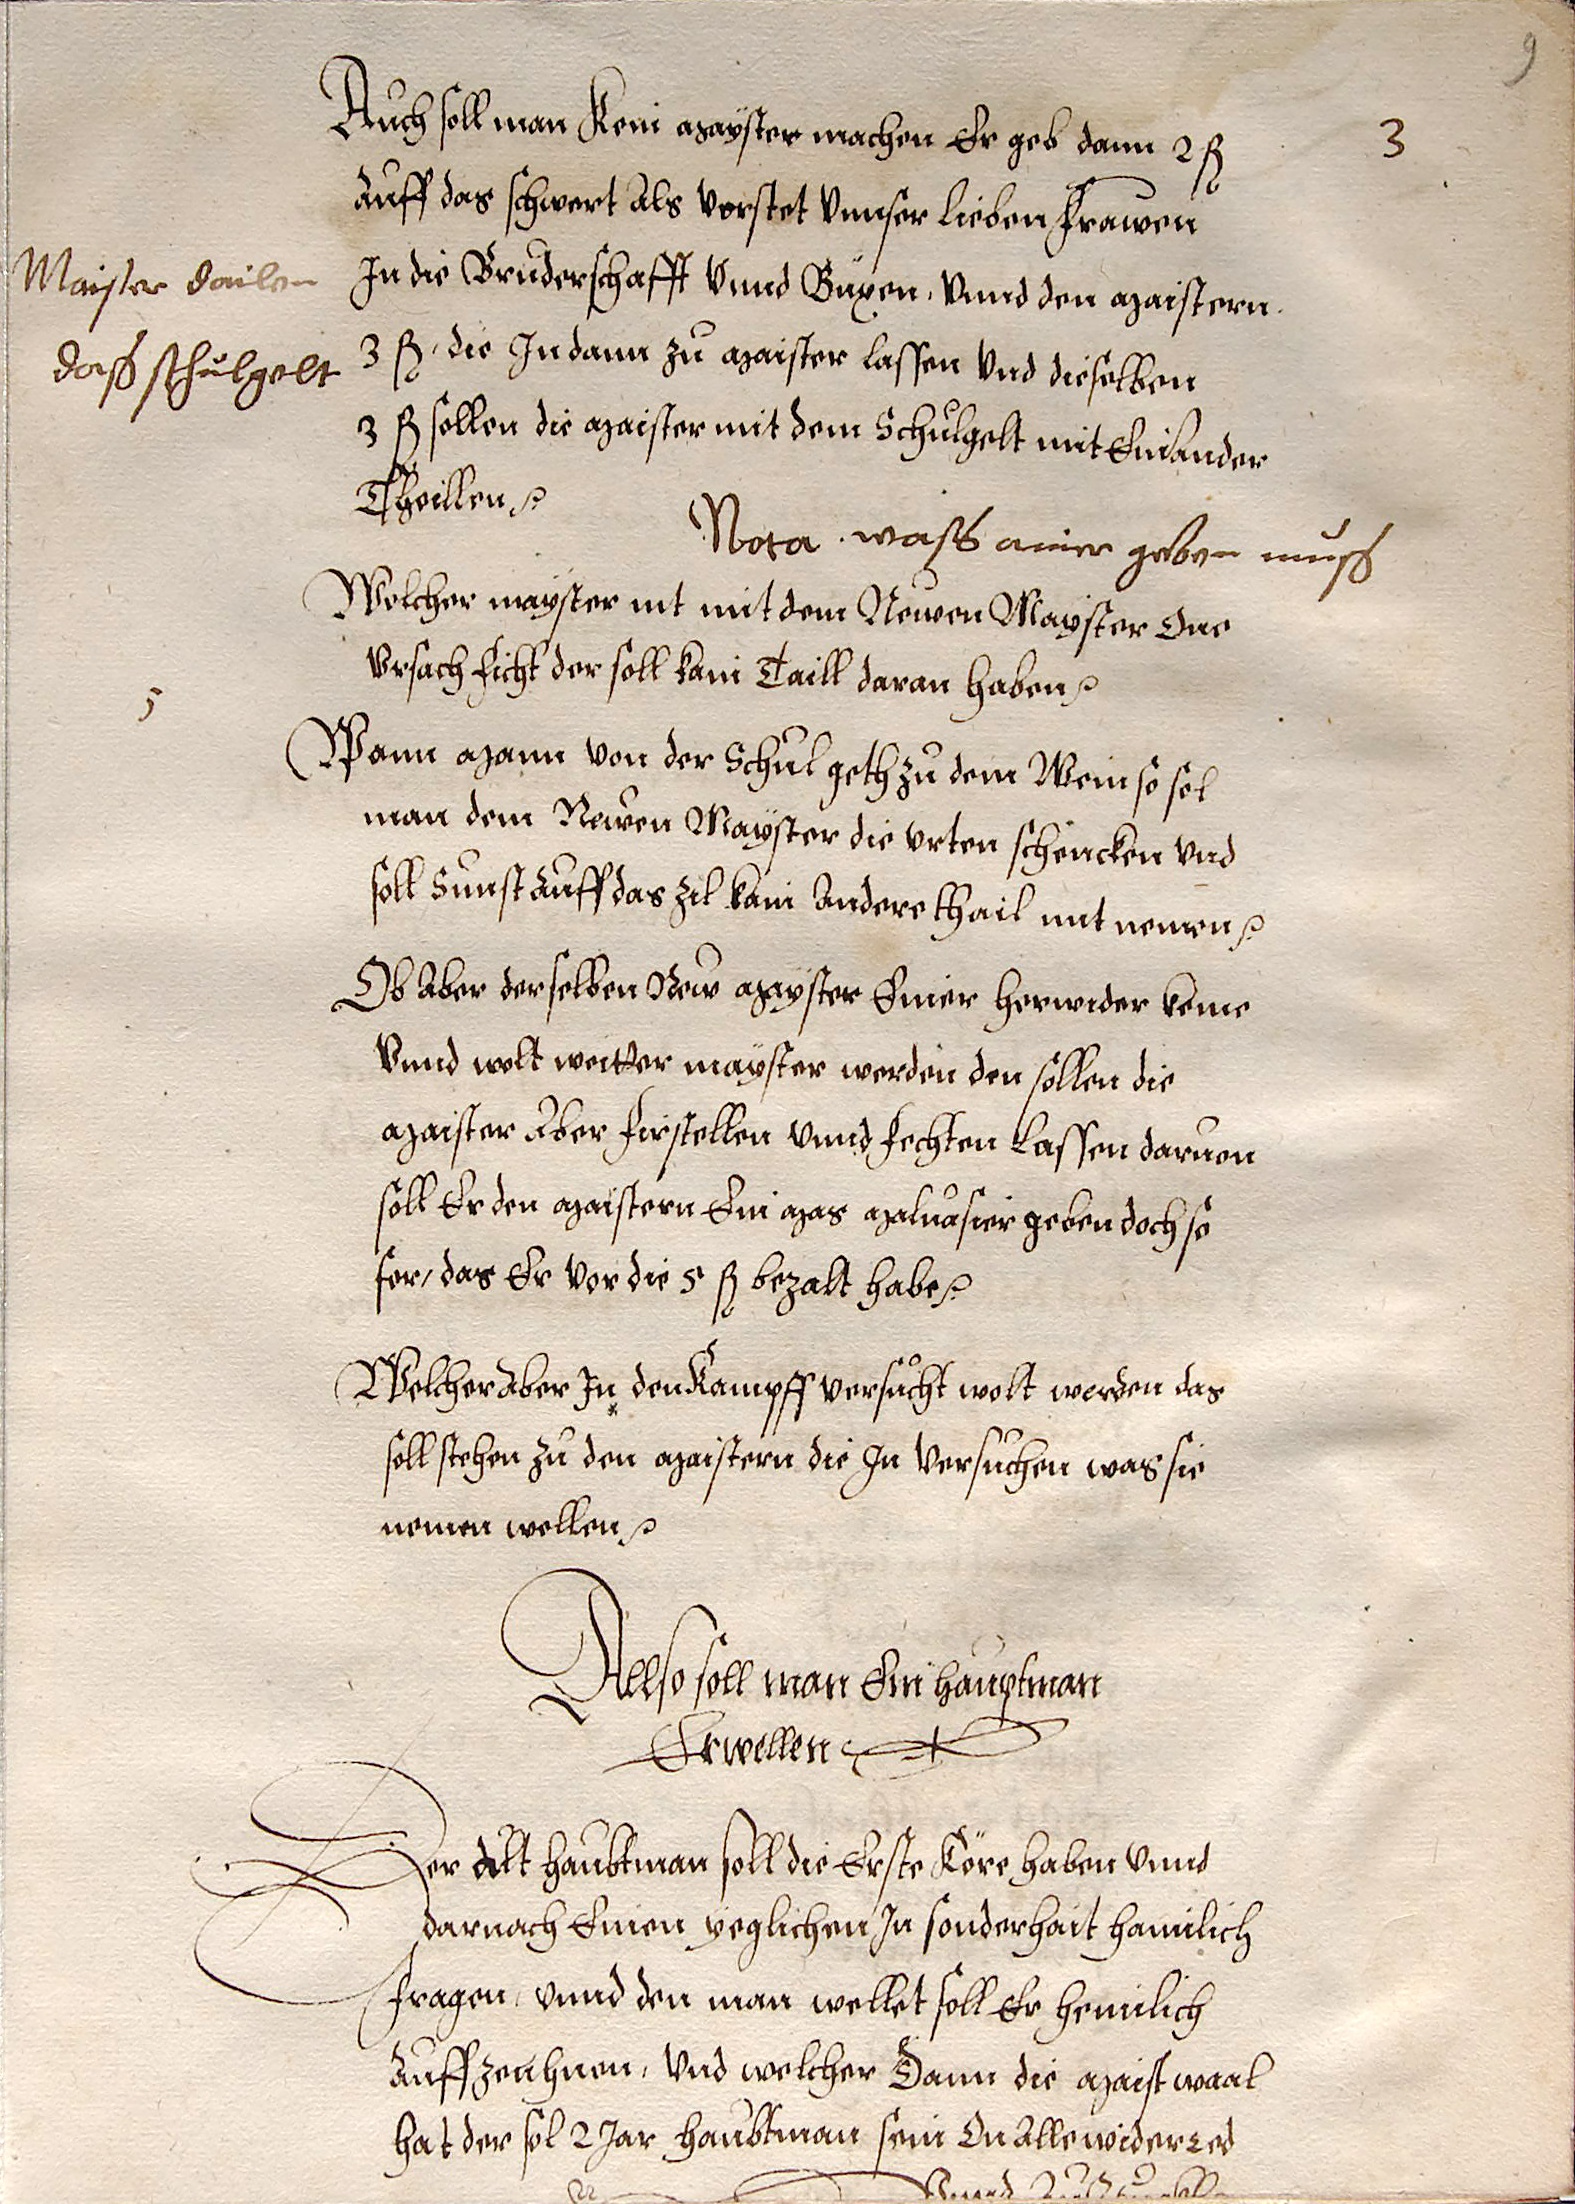 9
3
Auch soll man Kein mayster machen Er geb dann 2 ß
Auff das schwert Als vorstet vnnser lieben frawen
In die Bruderschafft vnnd Büxen, vnnd den maistern
Maister dailen
3 ß, die In dann zu maister lassen vnd dieselben
dass schulgelt
3 ß sollen die maister mit dem Schulgelt mit Einander
Theillen
Nota. wass ainer geben muss
Welcher mayster nit mit dem Newen Mayster One
vrsach ficht der soll kain Taill daran haben
5
Wann mann von der Schul geth zu dem Wein so sol
man dem Newen Mayster die vrten schencken vnd
soll Sunst Auff das zil kain Andere thail mit nemen
Ob Aber derselben New mayster Einer herwider keme
vnnd wolt weitter mayster werden den sollen die
maister Aber fürstellen vnnd fechten Lassen daruon
soll Er den maistern Ein mas maluasier geben doch so
fer, das Er vor die 5 ß bezalt habe
Welcher Aber In den Kampff versucht wolt werden das
soll stehen zu den maistern die In versuchen was sie
nemen wellen
Allso soll man Ein hauptman
Erwellen
Der Alt haubtman soll die Erste Köre haben vnnd
darnach Einen yeglichen In sonderhait haimlich
fragen, vnnd den man wellet soll Er heimlich
Auffzeichnen, vnd welcher Dann die maist waal
hat der sol 2 Jar haubtman sein On Alle widerred